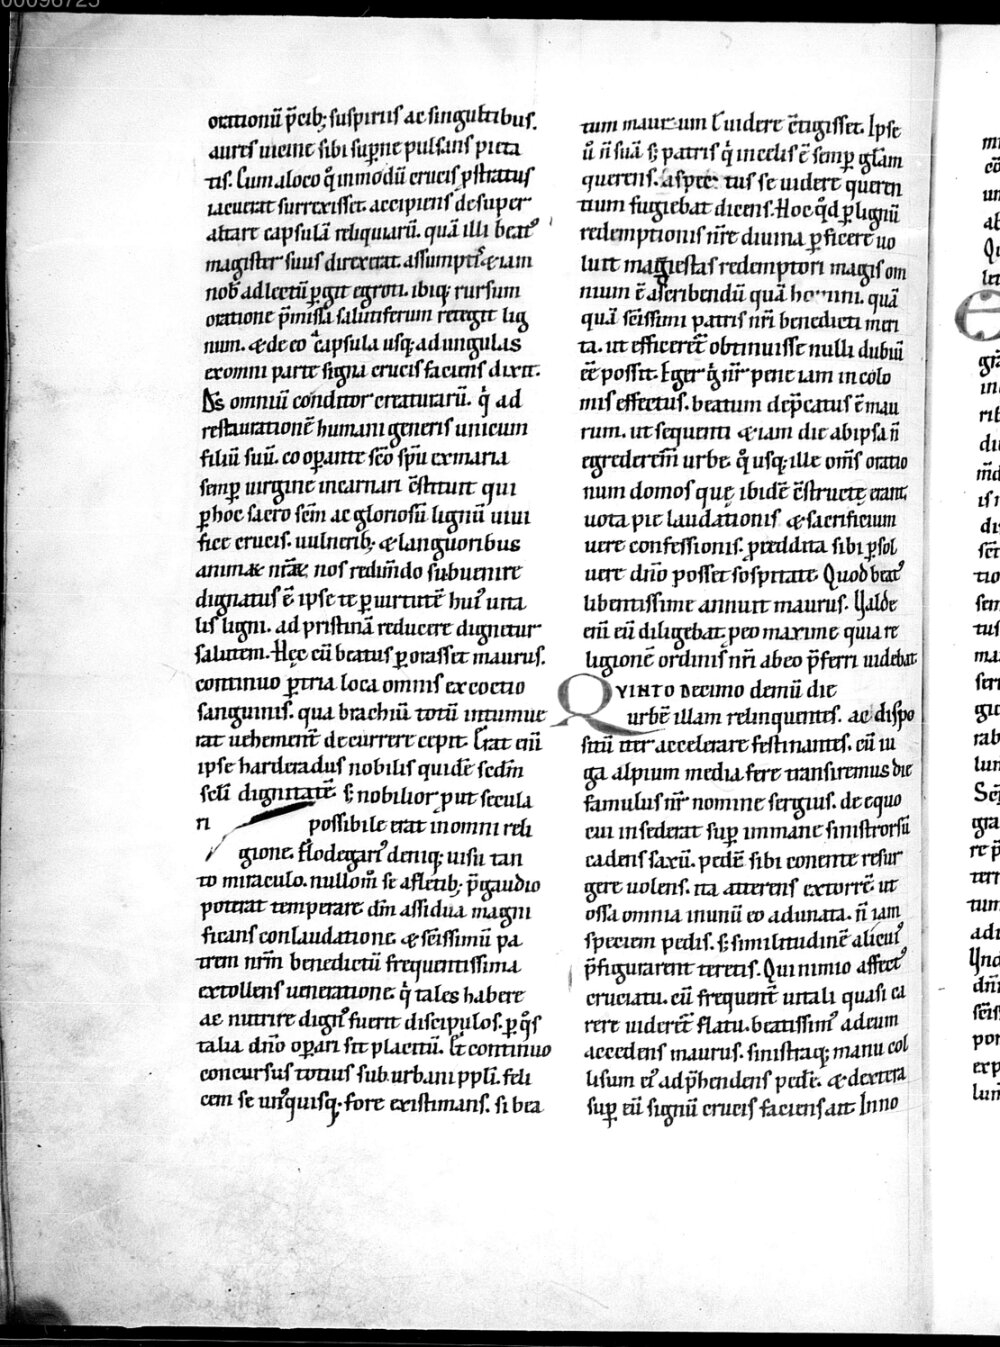 00096725
orationũ p̃cib; suspiriis ac singultibus.
aures uicine sibi sup̃ne pulsans pieta
tis. Cum a loco q̊ inmodũ crucis ꝓstratus
iacuerat surrexisset. accipiens desuper
altare capsulã reliquiarũ. quã illi beatꝰ
magister suus direxerat. assumptis & iam
nob̃ ad lectũ ꝑgit egroti. ibiq; rursum
oratione p̃missa salutiferum retegit lig
num. & de eo capsula usq; ad ungulas
ex omni parte signa crucis faciens dixit.
D̃s omniũ conditor creaturarũ. q̇ ad
restaurationẽ humani generis unicum
filiũ suũ. co oꝑante sc̃o sp̃u ex maria
semꝑ uirgine incarnari c̃stituit qui
ꝑ hoc sacro sc̃m ac gloriosũ lignũ uiui
fice crucis. uulnerib; & languoribus
animæ nr̃æ nos redim̃do subuenire
dignatus ẽ ipse te ꝑ uirtutẽ huiꝰ uita
lis ligni. ad pristinã reducere dignetur
salutem. Hęc cũ beatus ꝑorasset maurus.
continuo ꝑ tria loca omnis excoctio
sanguinis. qua brachiũ totũ intumue
rat uehement̃ decurrere cepit. Erat eni͂
ipse harderadus nobilis quidẽ sedm̃
scl̃i dignitatẽ s; nobilior put secula
ri possibile erat in omni reli
gione. Flodegariꝰ deniq; uisu tan
to miraculo. nullom̃ se a fletib; p̃ gaudio
poterat temperare. dm̃ assidua magni
ficans conlaudatione. & sc̃issimũ pa
trem nr̃m benedictũ frequentissima
extollens ueneratione. q̇ tales habere
ac nutrire dignꝰ fuerit discipulos. ꝑ q̊s
talia dño oꝑari sit placitũ. Et continuo
concursus totius suburbani ppl̃i. feli
cem se unꝰquisq; fore existimans. si bea
tum maurum l̃ uidere c̃tigisset. Ipse
ũ ñ suã s; patris q̇ in celis ẽ semꝑ gl̃am
querens. aspec tus se uidere queren
tium fugiebat dicens. Hoc q̊d ꝑ lignũ
redemptionis nr̃e diuina ꝑficere uo
luit magiestas redemptori magis om
nium ẽ asscribendũ quã homini. quã
quã sc̃issimi patris nr̃i benedicti meri
ta. ut efficeret̃ obtinuisse nulli dubiũ
ẽe possit. Eger g̊ nr̃ pene iam incolo
mis effectus. beatum dep̃catus ẽ mau
rum. ut sequenti & iam die ab ipsa ñ
egrederem̃ urbe. q̊ usq; ille om̃s oratio
num domos quę ibidẽ c̃structę erant,
uota pie laudationis & sacrificium
uere confessionis. p̱ reddita sibi ꝑsol
uere dño posset sospitate. Quod beatꝰ
libentissime annuit maurus. Valde
eni͂ eũ diligebat. p eo maxime quia re
ligionẽ ordinis nr̃i ab eo p̃ferri uidebat.
QVINTO decimo demũ die
urbẽ illam relinquentes. ac dispo
situ͂ iter accelerare festinantes. cũ iu
ga alpium media fere transiremus die
famulus nr̃ nomine sergius. de equo
cui insederat suꝑ immane sinistrorsũ
cadens saxũ. pedẽ sibi conterite resur
gere uolens. ita atterens extorrẽ. ut
ossa omnia in unũ co adunata. ñ iam
speciem pedis. s; similitudinẽ alicuiꝰ
p̃figurarent teretis. Qui nimio affectꝰ
cruciatu. cũ frequent̃ uitali quasi ca
rere uideret̃ flatu. beatissimꝰ ad eum
accedens maurus. sinistraq; manu col
lisum eiꝰ adp̃hendens pedẽ. & dextera
suꝑ eũ signũ crucis faciens ait. Inno